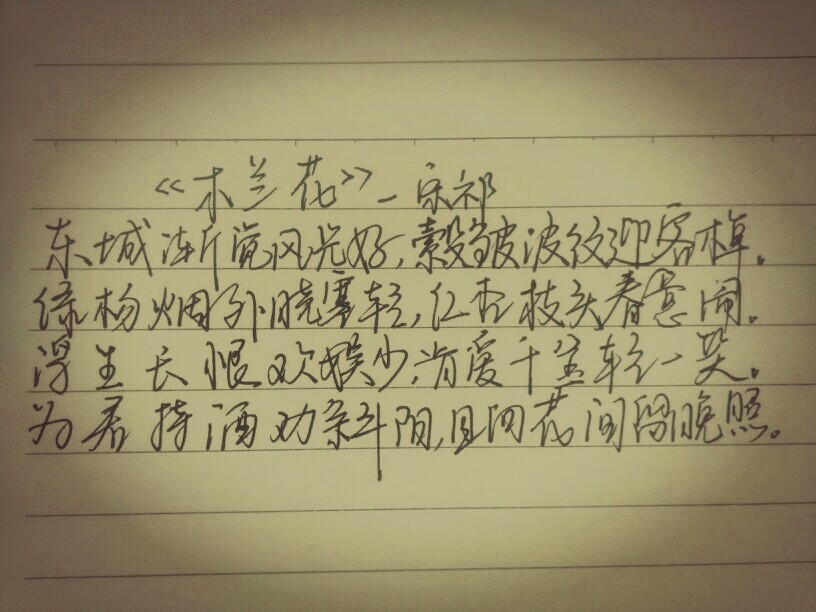 《木兰花》-宋祁
东城渐觉风光好,縠皱波纹迎客棹。
绿杨烟外晓寒轻,红杏枝头春意闹。
浮生长恨欢娱少,肯爱千金轻一笑。
为君持酒劝斜阳,且向花间留晚照。